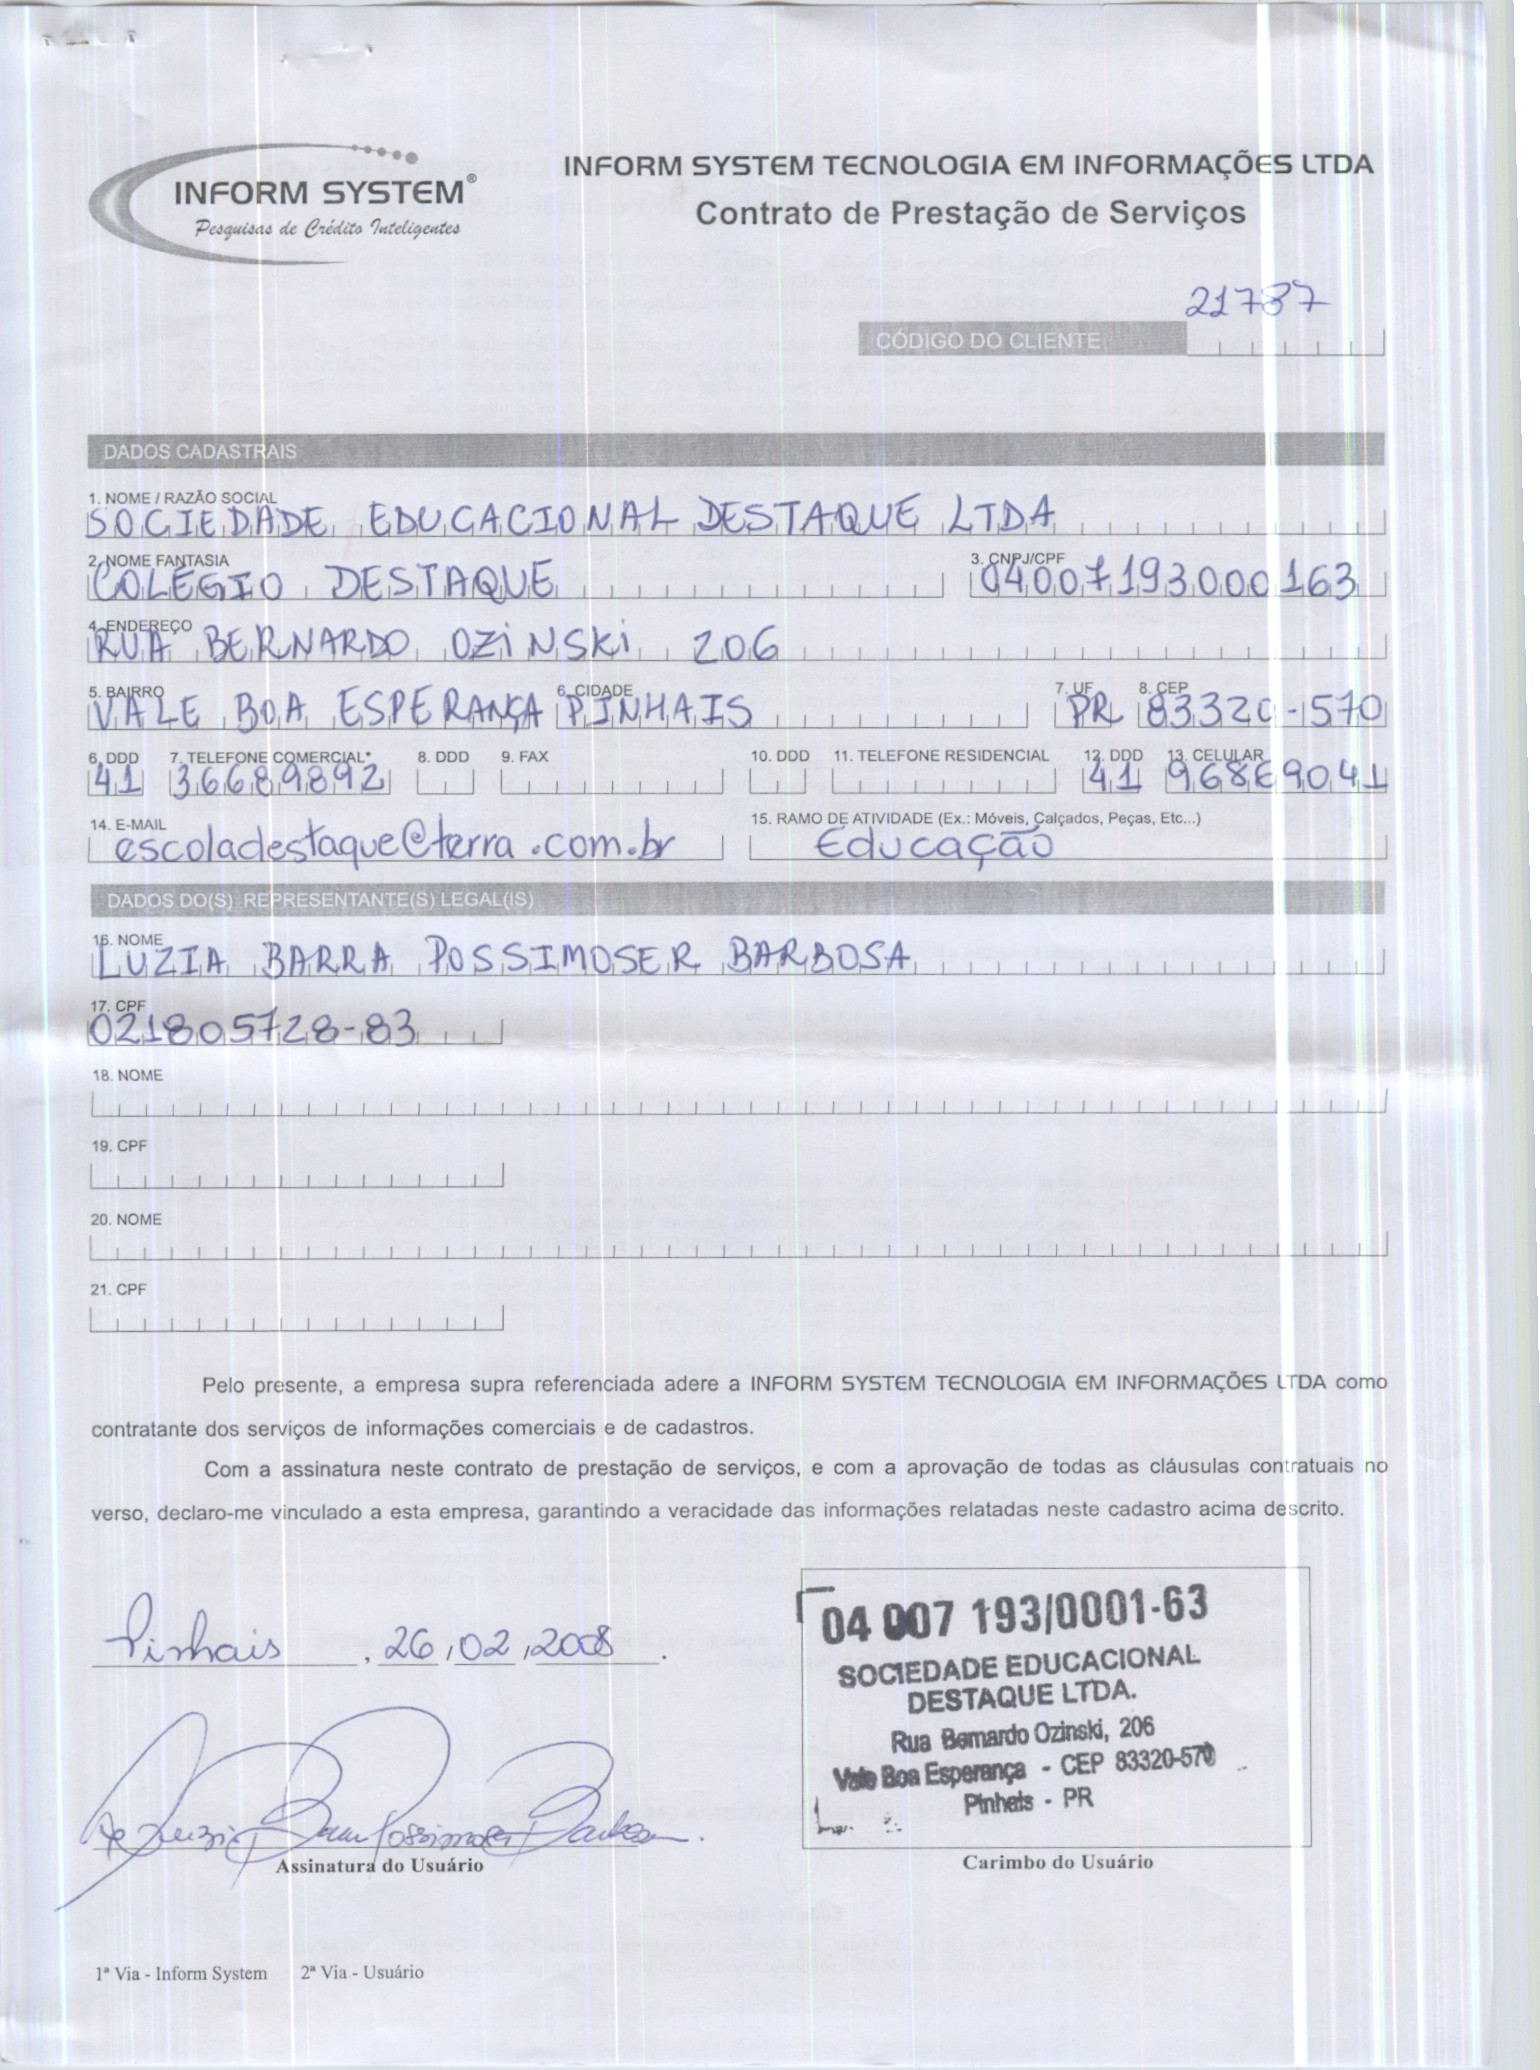 INFORM SYSTEM®
Pesquisas de Crédito Inteligentes
INFORM SYSTEM TECNOLOGIA EM INFORMAÇÕES LTDA
Contrato de Prestação de Serviços
21787
CÓDIGO DO CLIENTE
DADOS CADASTRAIS
1. NOME / RAZÃO SOCIAL
SOCIEDADE EDUCACIONAL DESTAQUE LTDA
2. NOME FANTASIA 3. CNPJ/CPF
COLÉGIO DESTAQUE 04007193000163
4. ENDEREÇO
RUA BERNARDO OZINSKI 206
5. BAIRRO 6. CIDADE 7. UF 8. CEP
VALE BOA ESPERANÇA PINHAIS PR 83320-570
6. DDD 7. TELEFONE COMERCIAL* 8. DDD 9. FAX 10. DDD 11. TELEFONE RESIDENCIAL 12. DDD 13. CELULAR
41 36689892 41 96869041
14. E-MAIL 15. RAMO DE ATIVIDADE (Ex.: Móveis, Calçados, Peças, Etc...)
escoladestaque@terra.com.br Educação
DADOS DO(S) REPRESENTANTE(S) LEGAL(IS)
16. NOME
LUZIA BARRA POSSIMOSER BARBOSA
17. CPF
021805728-83
18. NOME
19. CPF
20. NOME
21. CPF
Pelo presente, a empresa supra referenciada adere a INFORM SYSTEM TECNOLOGIA EM INFORMAÇÕES LTDA como
contratante dos serviços de informações comerciais e de cadastros.
Com a assinatura neste contrato de prestação de serviços, e com a aprovação de todas as cláusulas contratuais no
verso, declaro-me vinculado a esta empresa, garantindo a veracidade das informações relatadas neste cadastro acima descrito.
Pinhais, 26/02/2008.
04 007 193/0001-63
SOCIEDADE EDUCACIONAL
DESTAQUE LTDA.
Rua Bernardo Ozinski, 206
Vale Boa Esperança - CEP 83320-570
Pinhais - PR
Assinatura do Usuário
Carimbo do Usuário
1ª Via - Inform System 2ª Via - Usuário